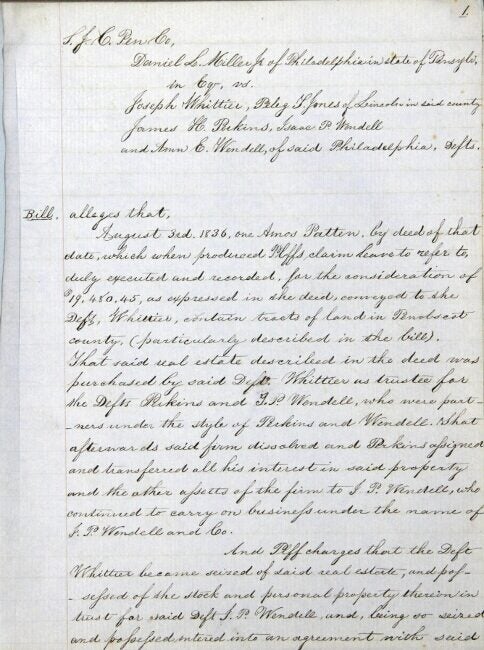 1.
S. J. C. Pen Co,
Daniel L. Miller Jr of Philadelphia in state of Pensylv,
in Eqy. vs.
Joseph Whittier, Peleg T. Jones of Lincoln in said county
James H. Perkins, Isaac P. Wendell
and Ann E. Wendell, of said Philadelphia, Defts.
Bill. alleges that,
August 3rd. 1836, one Amos Patten, by deed of that
date, which when produced Plffs, claim leave to refer to,
duly executed and recorded, for the consideration of
$19,480.45, as expressed in the deed, conveyed to the
Deft, Whittier, contain tracts of land in Penobscot
county, (particularly described in the bill).
That said real estate described in the deed was
purchased by said Deft. Whittier as trustee for
the Defts Perkins and I. P. Wendell, who were part-
-ners under the style of Perkins and Wendell. That
afterwards said firm dissolved and Perkins assigned
and transferred all his interest in said property
and the other assetts of the firm to I. P. Wendell, who
continued to carry on business under the name of
I. P. Wendell and Co.
And Plff charges that the Deft
Whittier became seized of said real estate, and pos-
-sessed of the stock and personal property therein in
trust for said Deft I. P. Wendell, and, being so seized
and possessed intered into an agreement with said